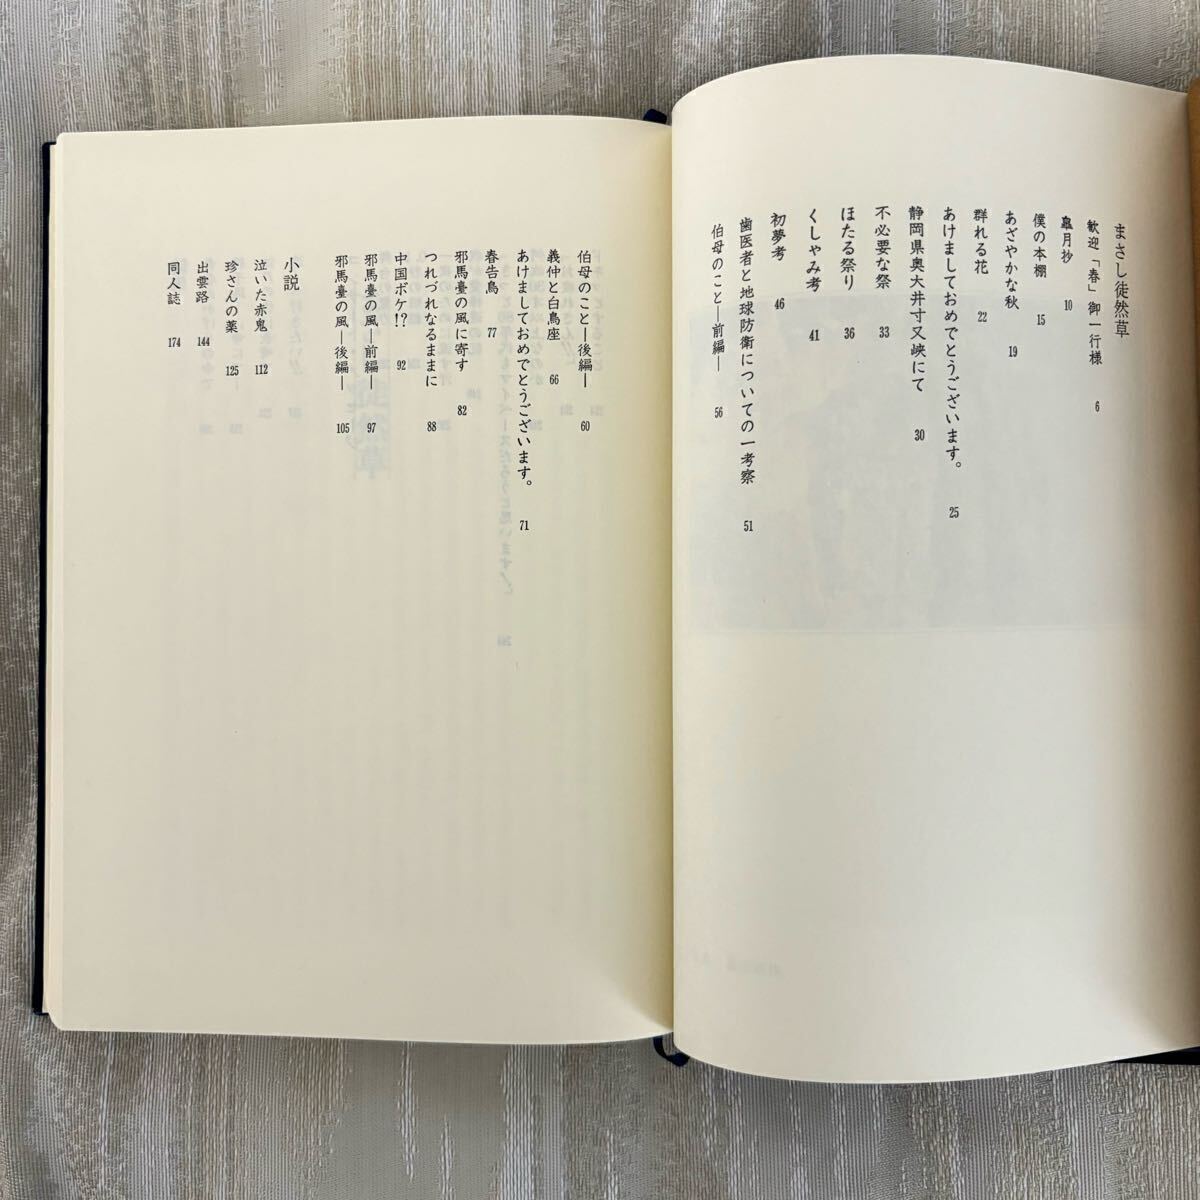 まさし徒然草
歓迎「春」御一行様 6
皐月抄 10
僕の本棚 15
あざやかな秋 19
群れる花 22
あけましておめでとうございます。 25
静岡県奥大井寸又峡にて 30
不必要な祭 33
ほたる祭り 36
くしゃみ考 41
初夢考 46
歯医者と地球防衛についての一考察 51
伯母のこと―前編― 56
伯母のこと―後編― 60
義仲と白鳥座 66
あけましておめでとうございます。 71
春告鳥 77
邪馬臺の風に寄す 82
つれづれなるままに 88
中国ボケ!? 92
邪馬臺の風―前編― 97
邪馬臺の風―後編― 105
小説
泣いた赤鬼 112
珍さんの薬 125
出雲路 144
同人誌 174